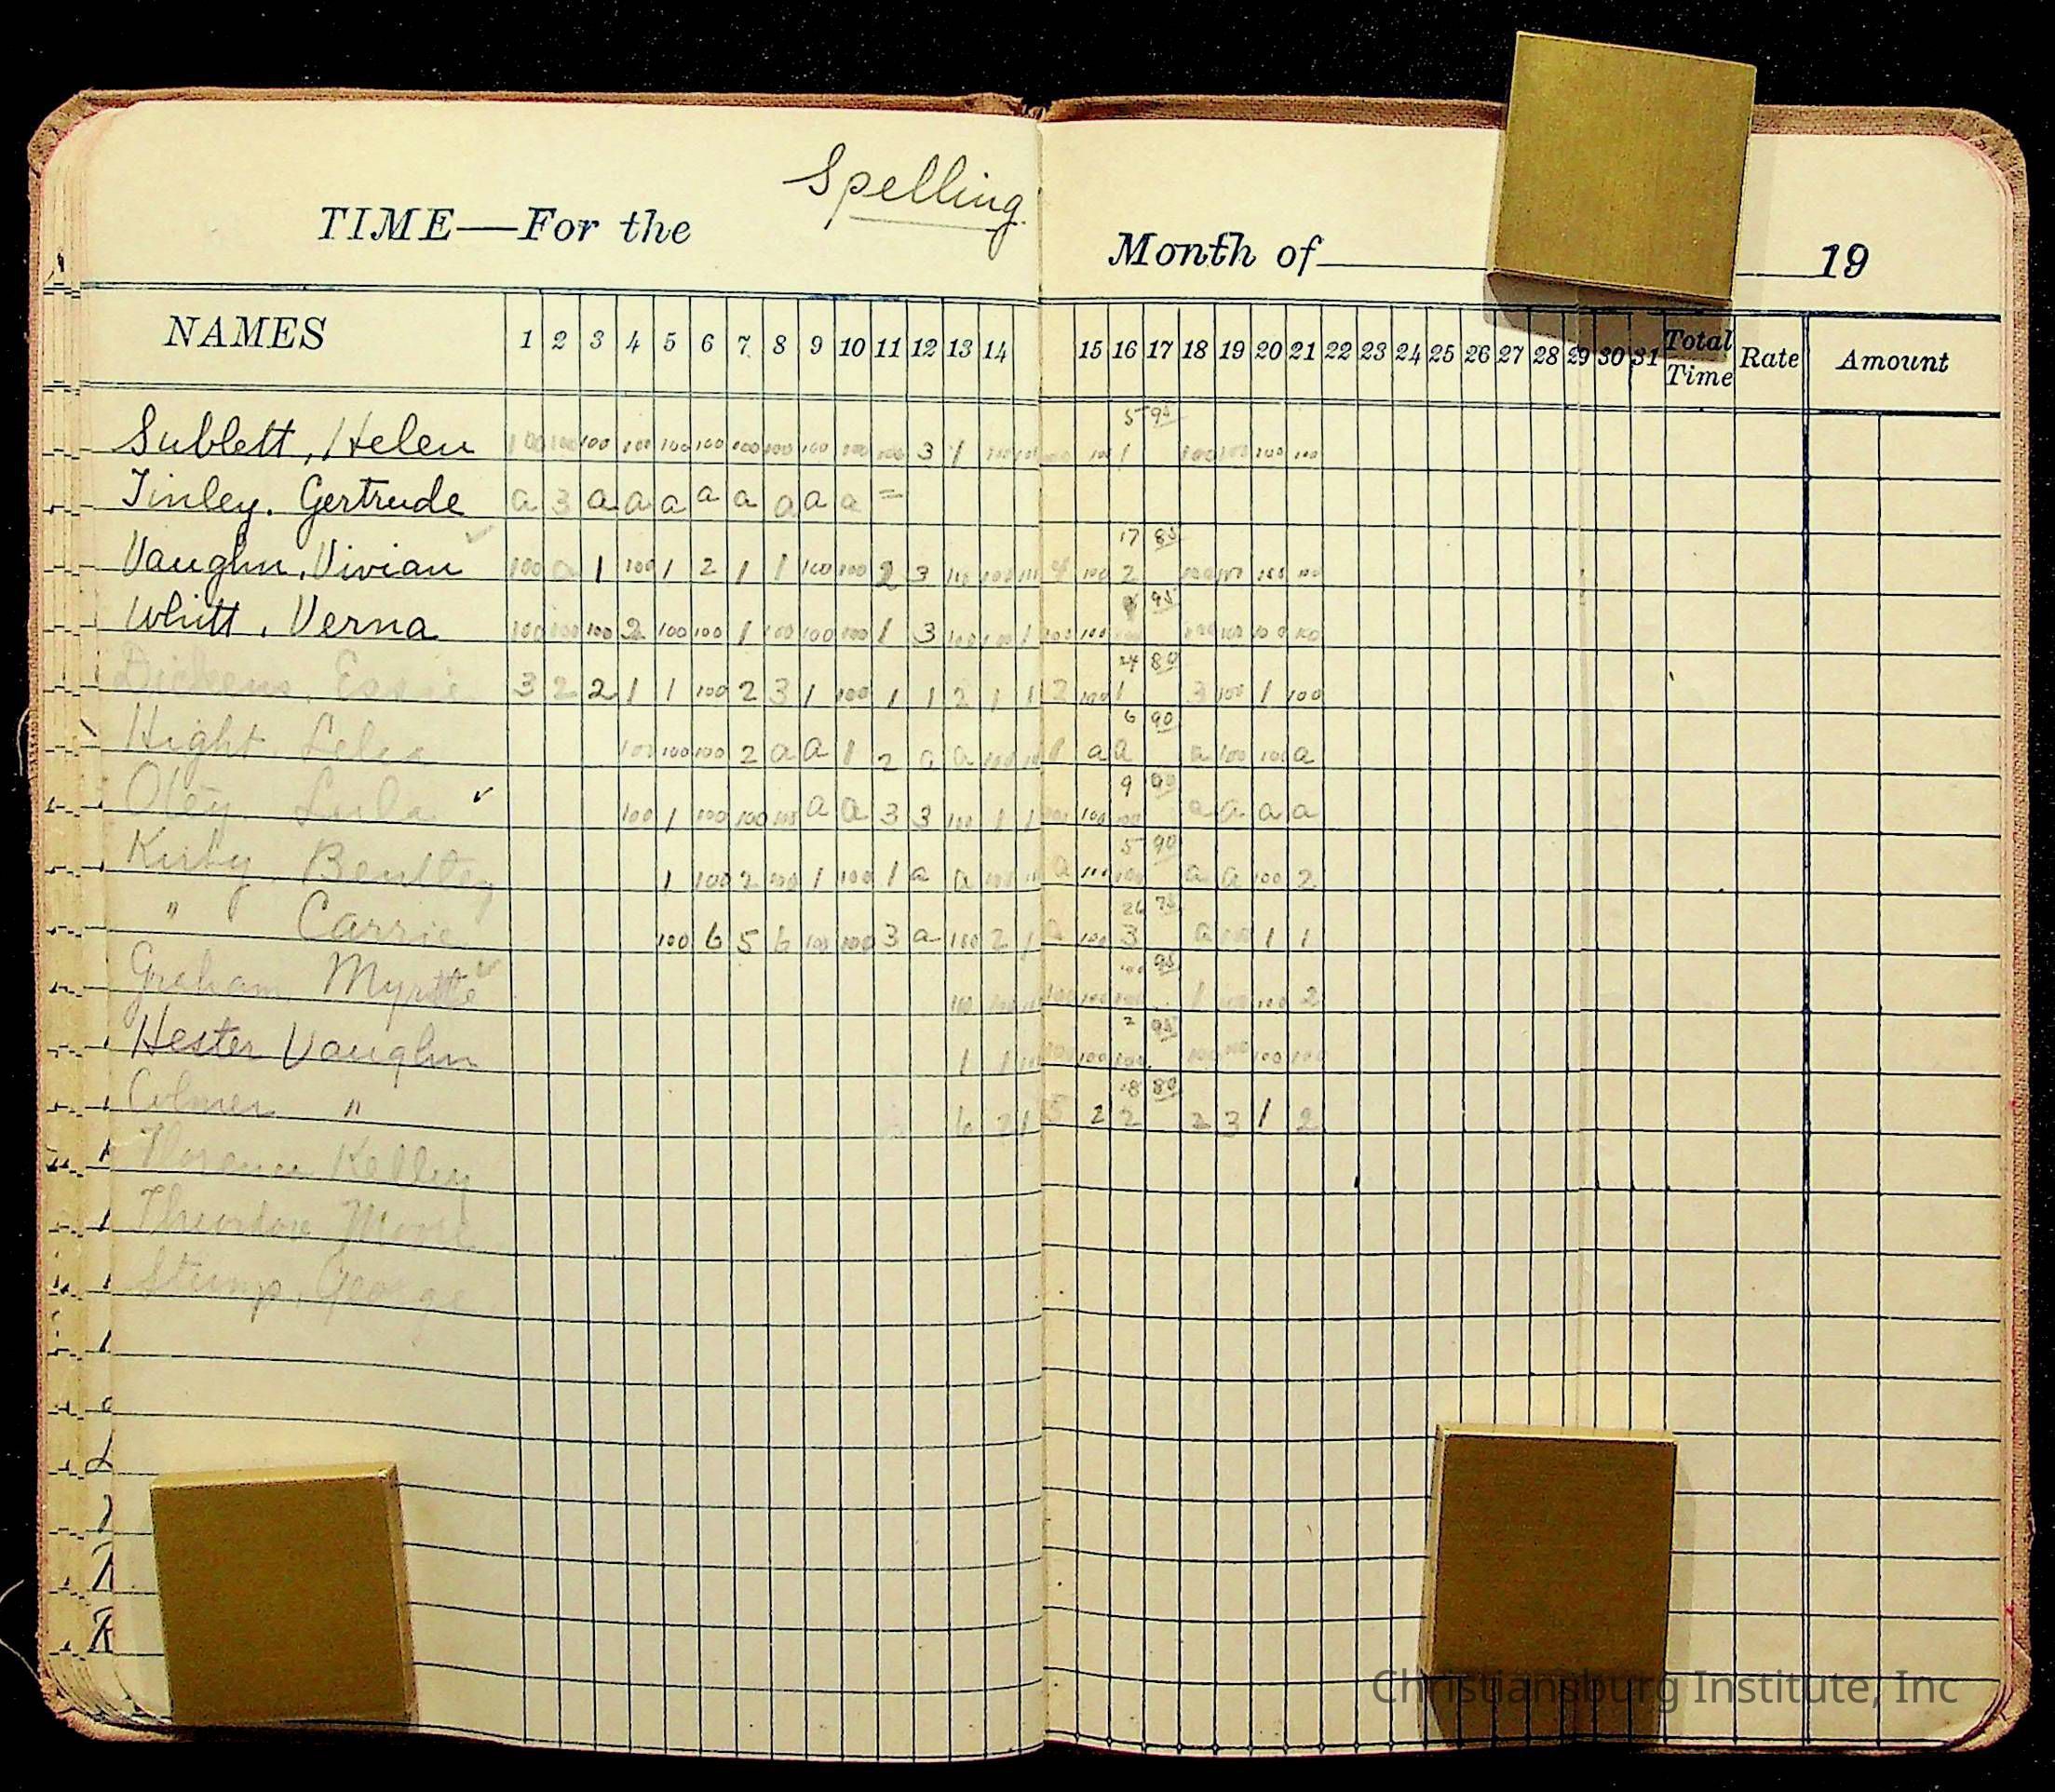 Spelling
TIME—For the Month of 19
NAMES 1 2 3 4 5 6 7 8 9 10 11 12 13 14 15 16 17 18 19 20 21 22 23 24 25 26 27 28 29 30 31 Total Time Rate Amount
5 95
Sublett, Helen 100 100 100 100 100 100 100 100 100 100 100 3 1 100 100 100 1 100 100 100 100
Tinley. Gertrude a 3 a a a a a a a a =
17 85
Vaughn, Vivian 100 a 1 100 1 2 1 1 100 100 2 3 100 100 4 100 2 100 100 100 100
95
Whitt, Verna 100 100 100 2 100 100 1 100 100 100 1 3 100 100 1 100 100 100 100 100 100
24 80
Dickens, Essie 3 2 2 1 1 100 2 3 1 100 1 1 2 1 1 2 100 1 3 100 1 100
6 90
Hight, Lelia 100 100 100 2 a a 1 2 a a 100 1 a a a 100 100 a
9 90
Otey, Lula 100 1 100 100 100 a a 3 3 100 1 1 100 100 100 a a a a
5 90
Kirby, Bentley 1 100 2 100 1 100 1 a a 100 a 100 100 a a 100 2
26 75
" Carrie 100 6 5 6 100 100 3 a 100 2 1 a 100 3 a 100 1 1
95
Graham Myrtle 100 100 100 100 1 100 100 2
2 95
Hester Vaughn 1 1 100 100 100 100 100 100 100 100
18 80
" 6 2 1 5 2 2 2 3 1 2
Florence Kelley
Theodore Moore
Stump, George
Christiansburg Institute, Inc